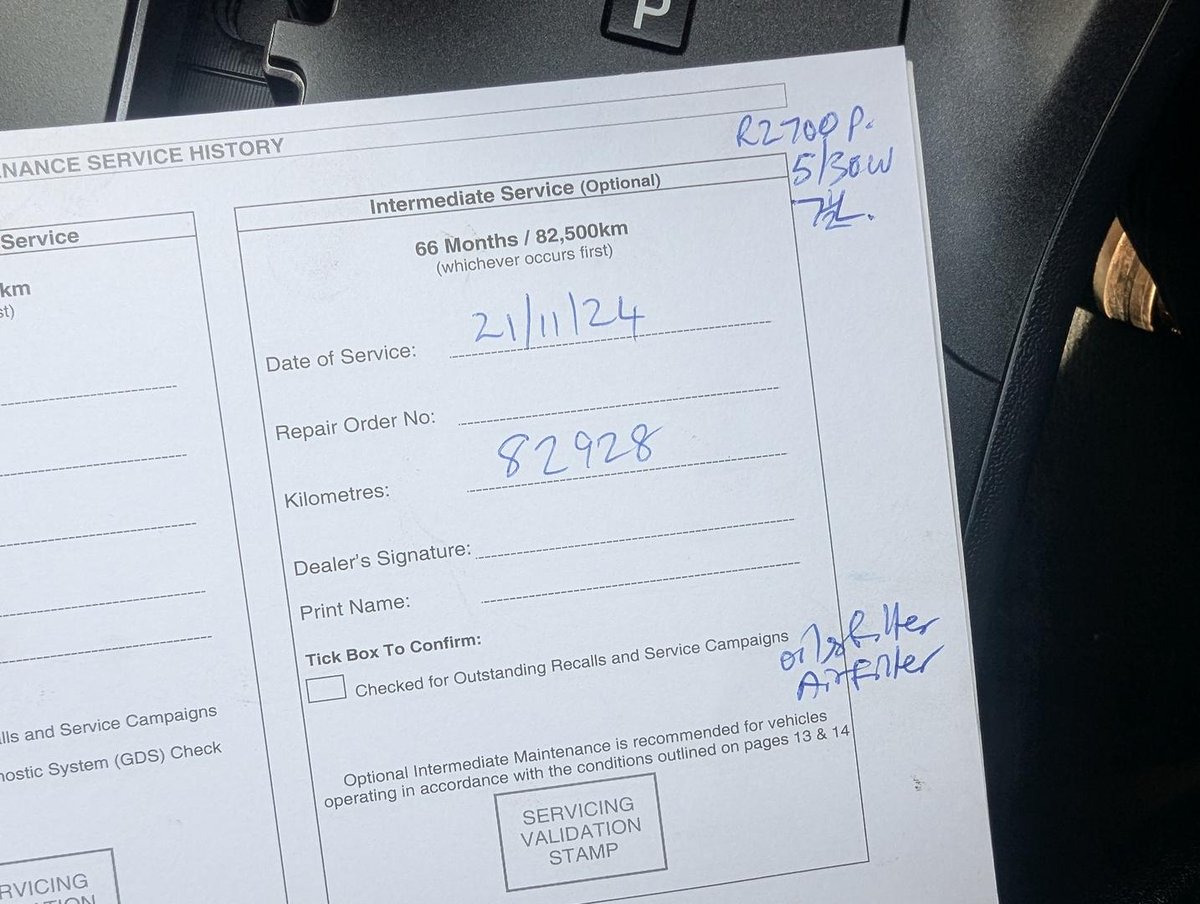 P
NANCE SERVICE HISTORY
R2700 P.
5/30W
7L.
Service
km
st)
lls and Service Campaigns
nostic System (GDS) Check
RVICING
TION
Intermediate Service (Optional)
66 Months / 82,500km
(whichever occurs first)
Date of Service: 21/11/24
Repair Order No:
Kilometres: 82928
Dealer's Signature:
Print Name:
Tick Box To Confirm:
Checked for Outstanding Recalls and Service Campaigns
oil & filter
Air filter
Optional Intermediate Maintenance is recommended for vehicles
operating in accordance with the conditions outlined on pages 13 & 14
SERVICING
VALIDATION
STAMP